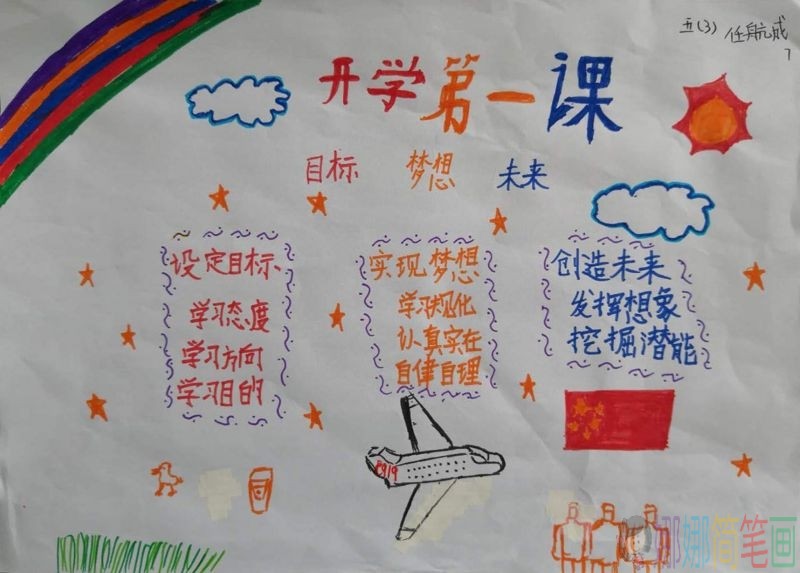 五(3) 任航成
7
开学第一课
目标 梦想 未来
设定目标
学习态度
学习方向
学习目的
实现梦想
学习规化
认真实在
自律自理
创造未来
发挥想象
挖掘潜能
C919
娜娜简笔画